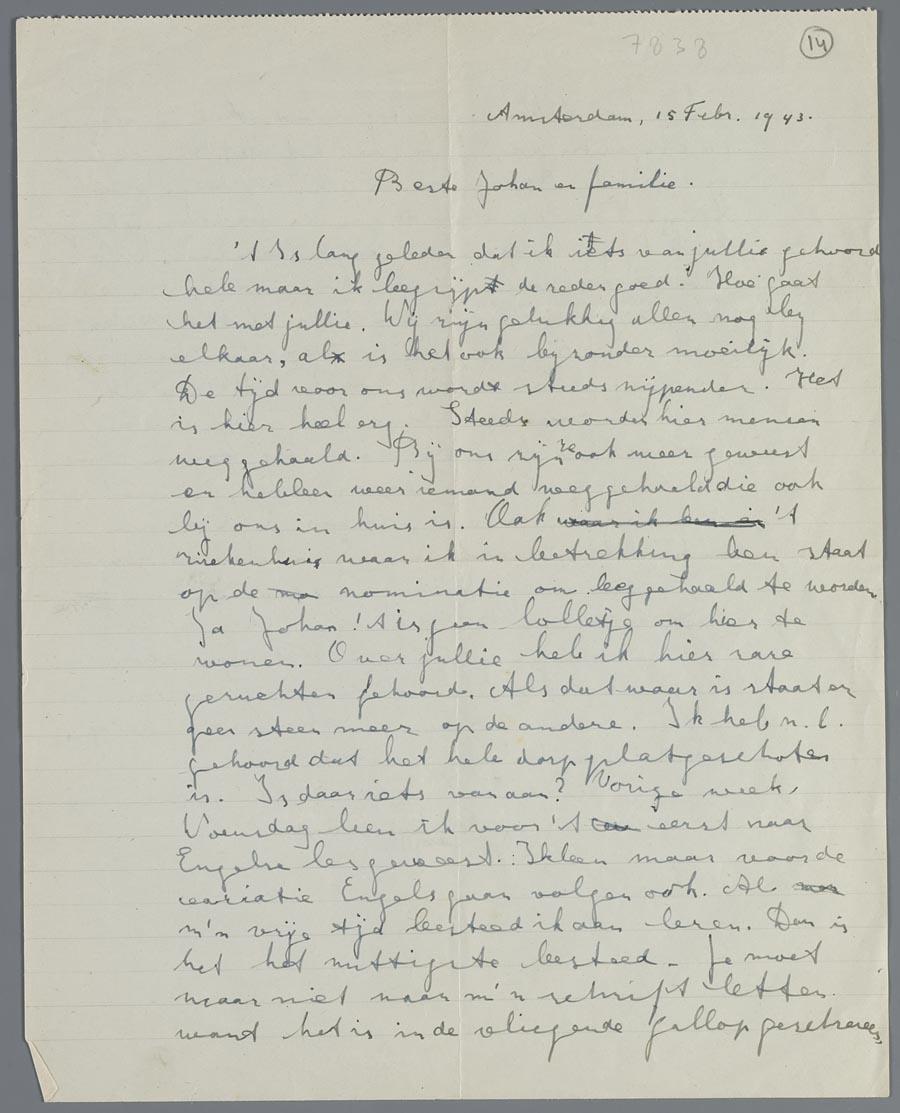 7838
14
Amsterdam, 15 Febr. 1943.
Beste Johan en familie.
't Is lang geleden dat ik iets van jullie gehoord
heb maar ik begrijp de reden goed. Hoe gaat
het met jullie. Wij zijn gelukkig allen nog by
elkaar, al is het ook byzonder moeilyk.
De tyd voor ons wordt steeds nypender. Het
is hier heel erg. Steeds worden hier mensen
weggehaald. Bij ons zijn ze ook weer geweest
en hebben weer iemand weggehaald die ook
by ons in huis is. Ook waar ik ben in 't
ziekenhuis waar ik in betrekking ben staat
op de nominatie om leeggehaald te worden.
Ja Johan! 't is geen lolletje om hier te
wonen. Over jullie heb ik hier rare
geruchten gehoord. Als dat waar is staat er
geen steen meer op de andere. Ik heb n.l.
gehoord dat het hele dorp platgeschoten
is. Is daar iets van aan? Vorige week,
Woensdag ben ik voor 't eerst naar
Engelse les geweest. Ik ben maar voor de
variatie Engels gaan volgen ook. Al
m'n vrije tijd besteed ik aan leren. Dan is
het het nuttigste besteed - Je moet
maar niet naar m'n schrift letten
want het is in de vliegende gallop geschreven,